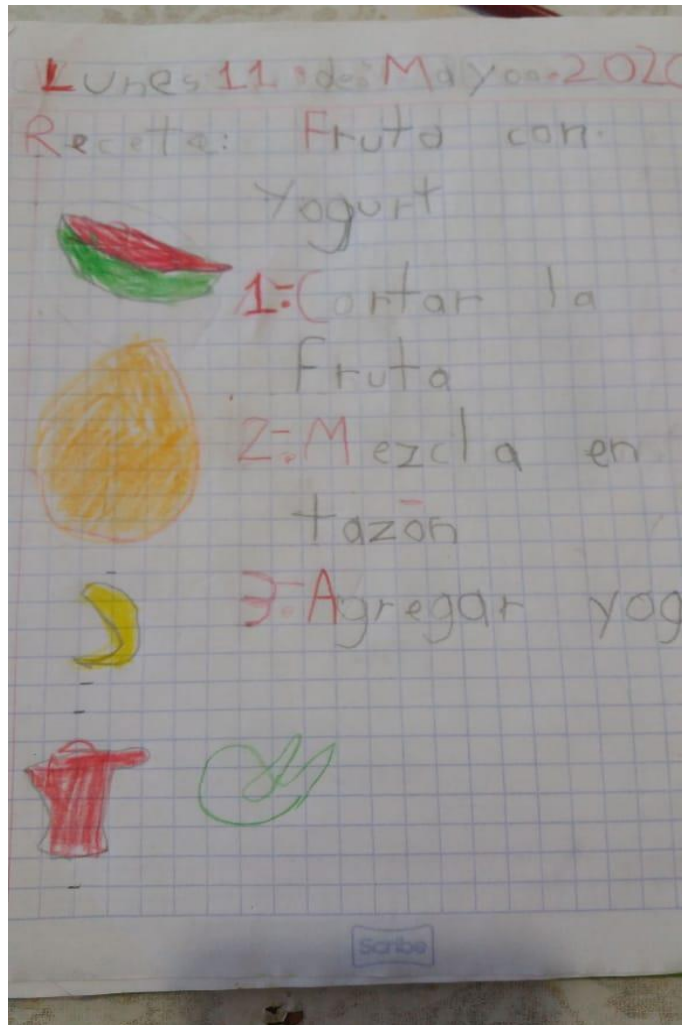 Lunes 11 de Mayo 2020
Receta: Fruta con
yogurt
1:Cortar la
fruta
2:Mezcla en
tazón
3:Agregar yog
Scribe